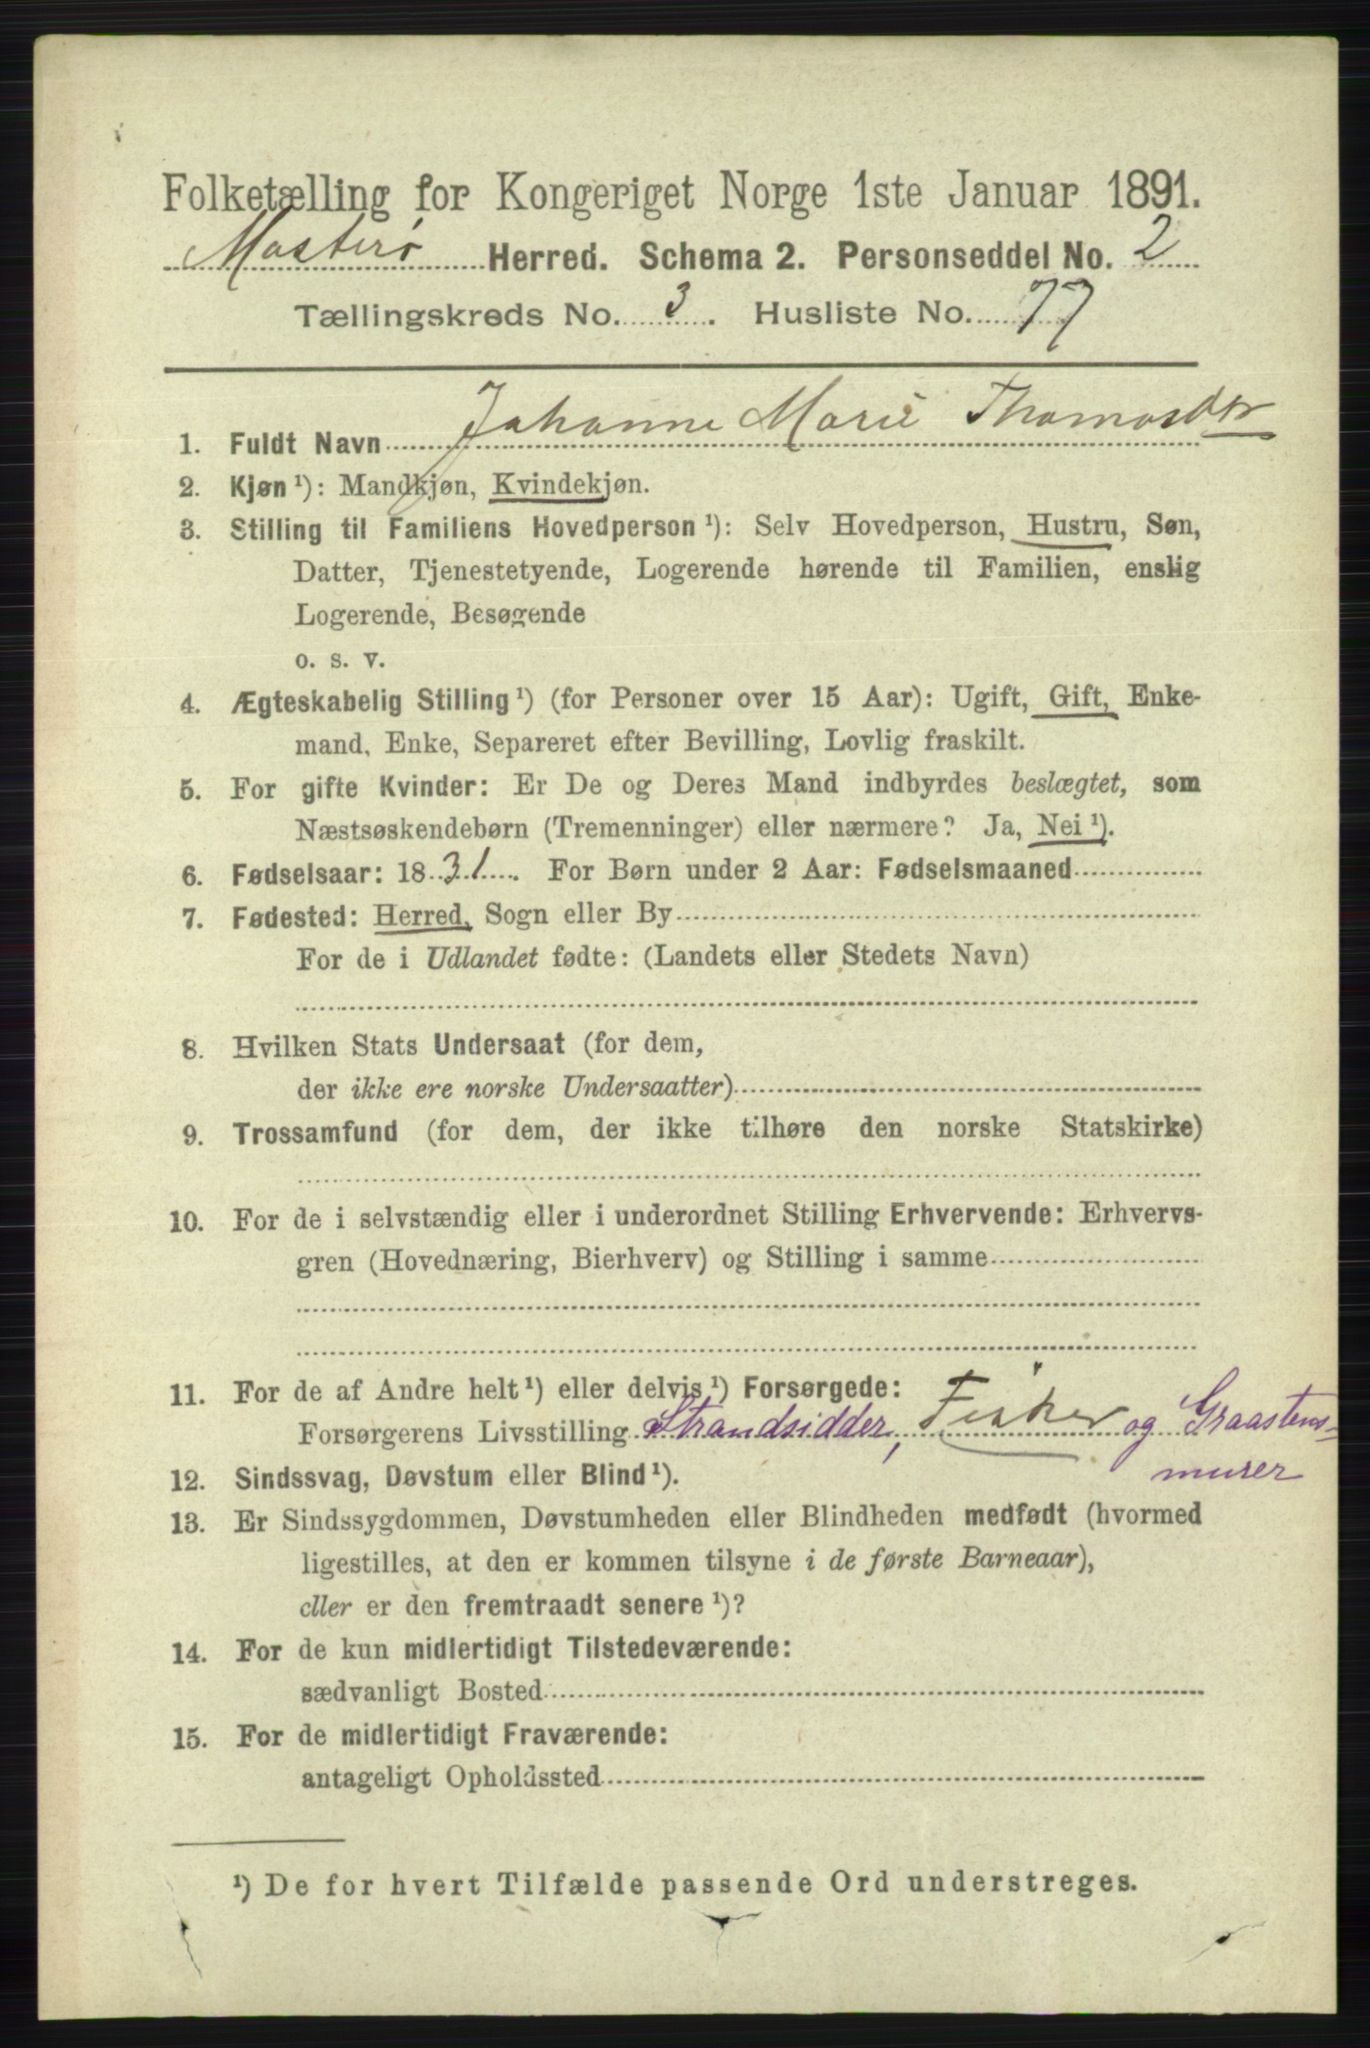 Folketælling for Kongeriget Norge 1ste Januar 1891.
Mosterø Herred. Schema 2. Personseddel No. 2
Tællingskreds No. 3. Husliste No. 77
1. Fuldt Navn Johanne Marie Thomasdtr
2. Kjøn ¹): Mandkjøn, Kvindekjøn.
3. Stilling til Familiens Hovedperson ¹): Selv Hovedperson, Hustru, Søn,
Datter, Tjenestetyende, Logerende hørende til Familien, enslig
Logerende, Besøgende
o. s. v.
4. Ægteskabelig Stilling ¹) (for Personer over 15 Aar): Ugift, Gift, Enke-
mand, Enke, Separeret efter Bevilling, Lovlig fraskilt.
5. For gifte Kvinder: Er De og Deres Mand indbyrdes beslægtet, som
Næstsøskendebørn (Tremenninger) eller nærmere? Ja, Nei ¹).
6. Fødselsaar: 1831. For Børn under 2 Aar: Fødselsmaaned
7. Fødested: Herred, Sogn eller By
For de i Udlandet fødte: (Landets eller Stedets Navn)
8. Hvilken Stats Undersaat (for dem,
der ikke ere norske Undersaatter)
9. Trossamfund (for dem, der ikke tilhøre den norske Statskirke)
10. For de i selvstændig eller i underordnet Stilling Erhvervende: Erhvervs-
gren (Hovednæring, Bierhverv) og Stilling i samme
11. For de af Andre helt ¹) eller delvis ¹) Forsørgede:
Forsørgerens Livsstilling Strandsidder, Fisker og Graastens-
murer
12. Sindssvag, Døvstum eller Blind ¹).
13. Er Sindssygdommen, Døvstumheden eller Blindheden medfødt (hvormed
ligestilles, at den er kommen tilsyne i de første Barneaar),
eller er den fremtraadt senere ¹)?
14. For de kun midlertidigt Tilstedeværende:
sædvanligt Bosted
15. For de midlertidigt Fraværende:
antageligt Opholdssted
¹) De for hvert Tilfælde passende Ord understreges.